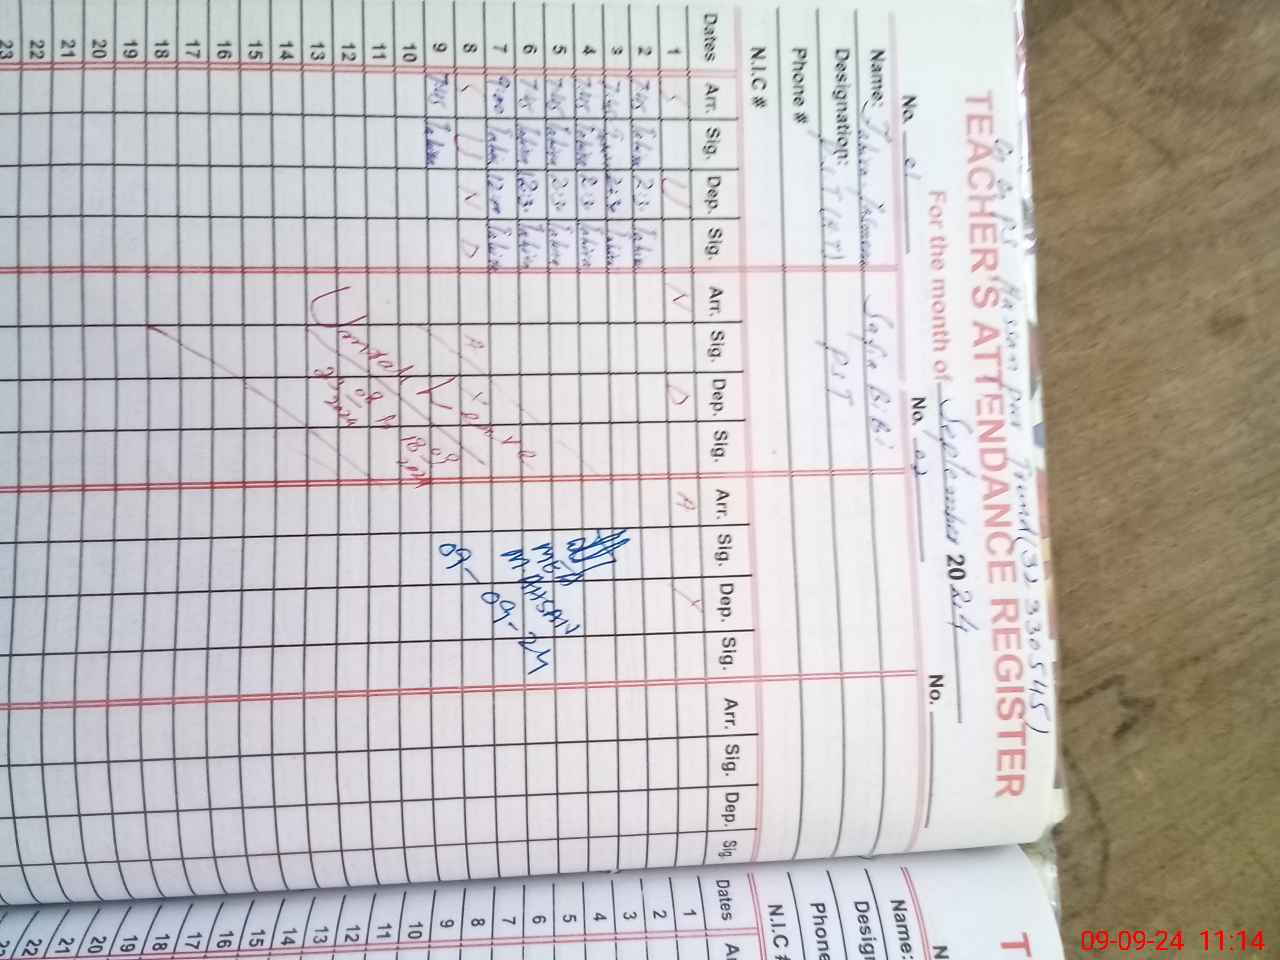 TEACHER'S ATTENDANCE REGISTER
For the month of September 2024
No. 01 No. 02 No.
Name: Tahira Safia Bibi
Designation: PST
Phone #
N.I.C #
Dates Arr. Sig. Dep. Sig. Arr. Sig. Dep. Sig. Arr. Sig. Dep. Sig. Arr. Sig. Dep. Sig.
1 S U N D A Y
2 7:45 Tahira 2:30 Tahira
3 7:45 2:30 Tahira
4 7:45 Tahira 2:30 Tahira
5 7:45 Tahira 2:30 Tahira
6 7:45 Tahira 12:30 Tahira
7 9:00 Tahira 12:00 Tahira
8 S U N D A Y
9 7:45 Tahira
10
11
12
13
14
15
16
17
18
19
20
21
22
23
Ummrah Leave
MEA
M. AHSAN
09-09-24
T
N
Name:
Desigr
Phone
N.I.C #
Dates A
1
2
3
4
5
6
7
8
9
10
11
12
13
14
15
16
17
18
19
20
21
22
23
09-09-24 11:14